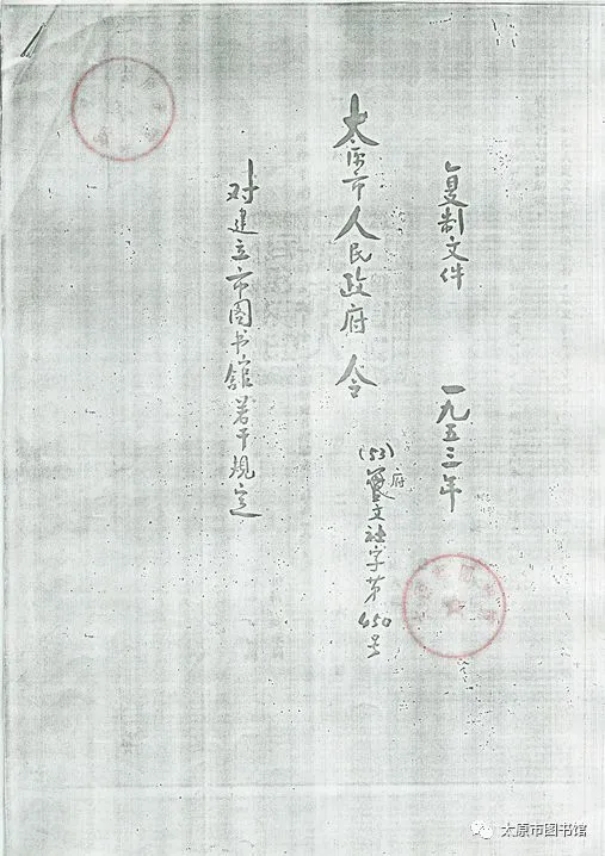 复制文件 一九五三年
太原市人民政府令
(53)府文社字第450号
对建立市图书馆若干规定
太原市图书馆